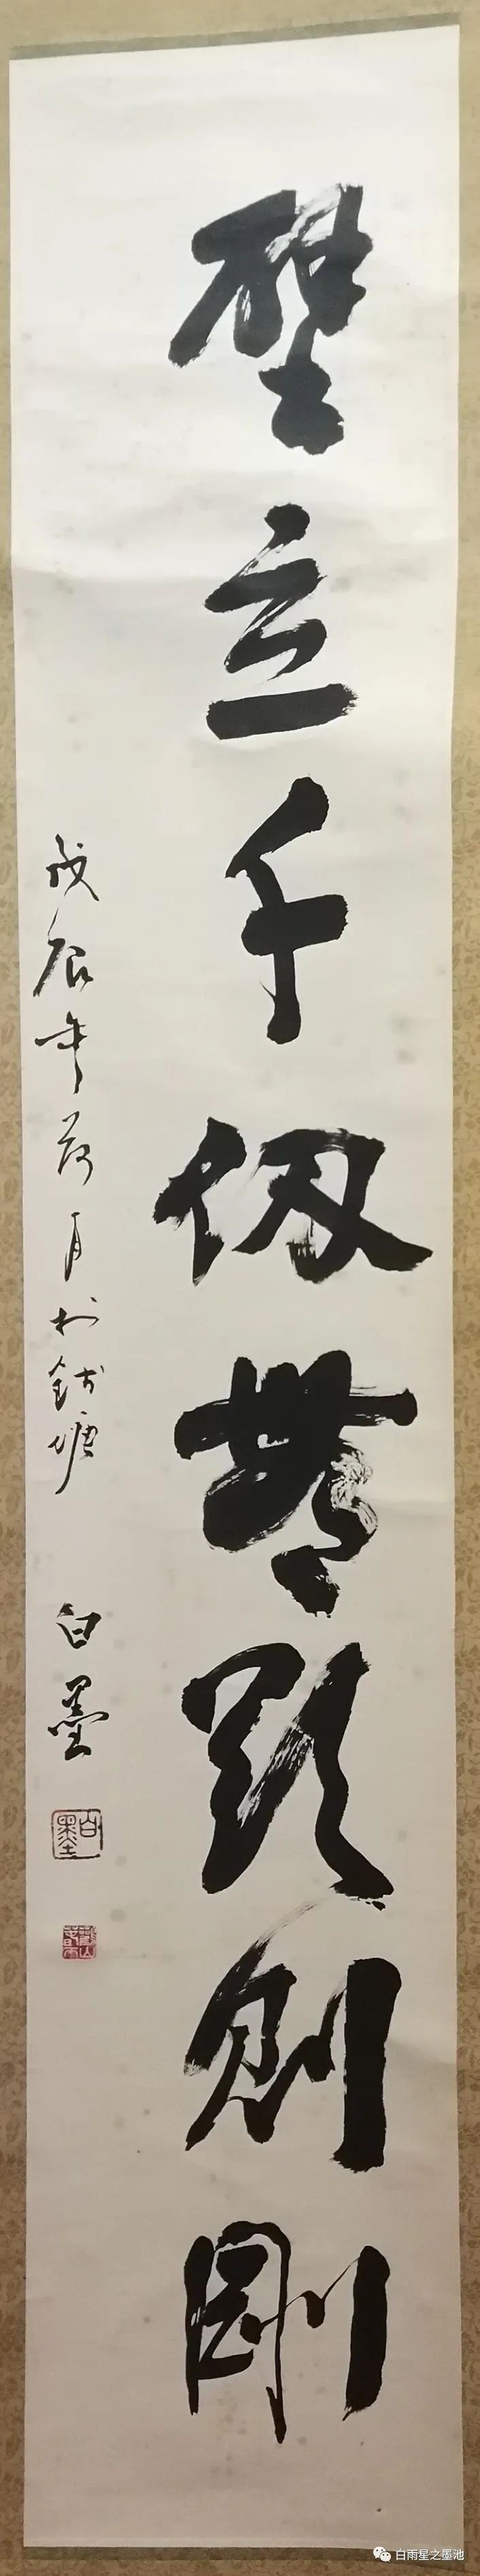 壁立千仭無欲則剛
戊辰年荷月於錢塘
白墨
白墨
白雨星之墨池